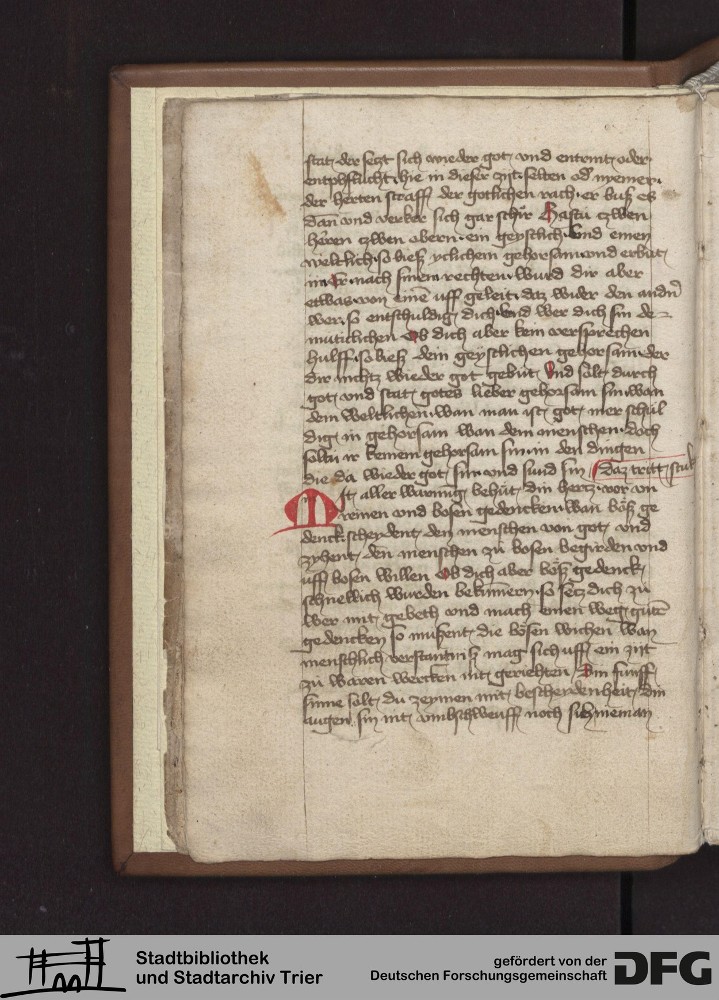 stat der setzt sich wieder got vnd entrint oder
entphlücht hie in dieser zijt selten od nyemer
der herten straff der gotlichen rach er buß es
dan vnd verker sich gar schir Hastu czwen
heren czwen obern ein geystlich vnd einen
weltlich so bieß yclichem gehorsam vnd erbüt
im Er nach sinem rechten wurd dir aber
etwas von eine uff geleit daz wider den andn
wer so entschuldig dich vnd wer dich sin de=
muticlichen Ob dich aber kein versprechen
hulff so bieß dem geystlichen gehorsam der
dir nichtz wieder got gebüt Vnd solt durch
got vnd stat gotes lieber gehorsam sin wan
dem weltlichen wan man ist got mer schul
dig in gehorsam wan dem menschen doch
soltu ir keinem gehorsam sin in den dingen
die da wieder got sin vnd sund sin Daz tritt stuk
Mit aller warnūg behüt din hertz vor vn
reinen vnd bosen gedencken wan böß ge
denck scheydent den menschen von got vnd
zyhent den menschen zu bosen begirden vnd
uff bosen willen Ob dich aber böß gedenck
schnellich wurden bekumern so setz dich zü
wer mit gebeth vnd mach einen weg gute
gedencken so mußent die bösen wichen wan
menschlich verstantniß mag sich uff ein zijt
zu waren wercken nit gerichten Din funff
sinne solt du zeymen mit bescheydenheit Din
augen sin nit vmbschweuff noch sich nieman
Stadtbibliothek
und Stadtarchiv Trier
gefördert von der
Deutschen Forschungsgemeinschaft
DFG